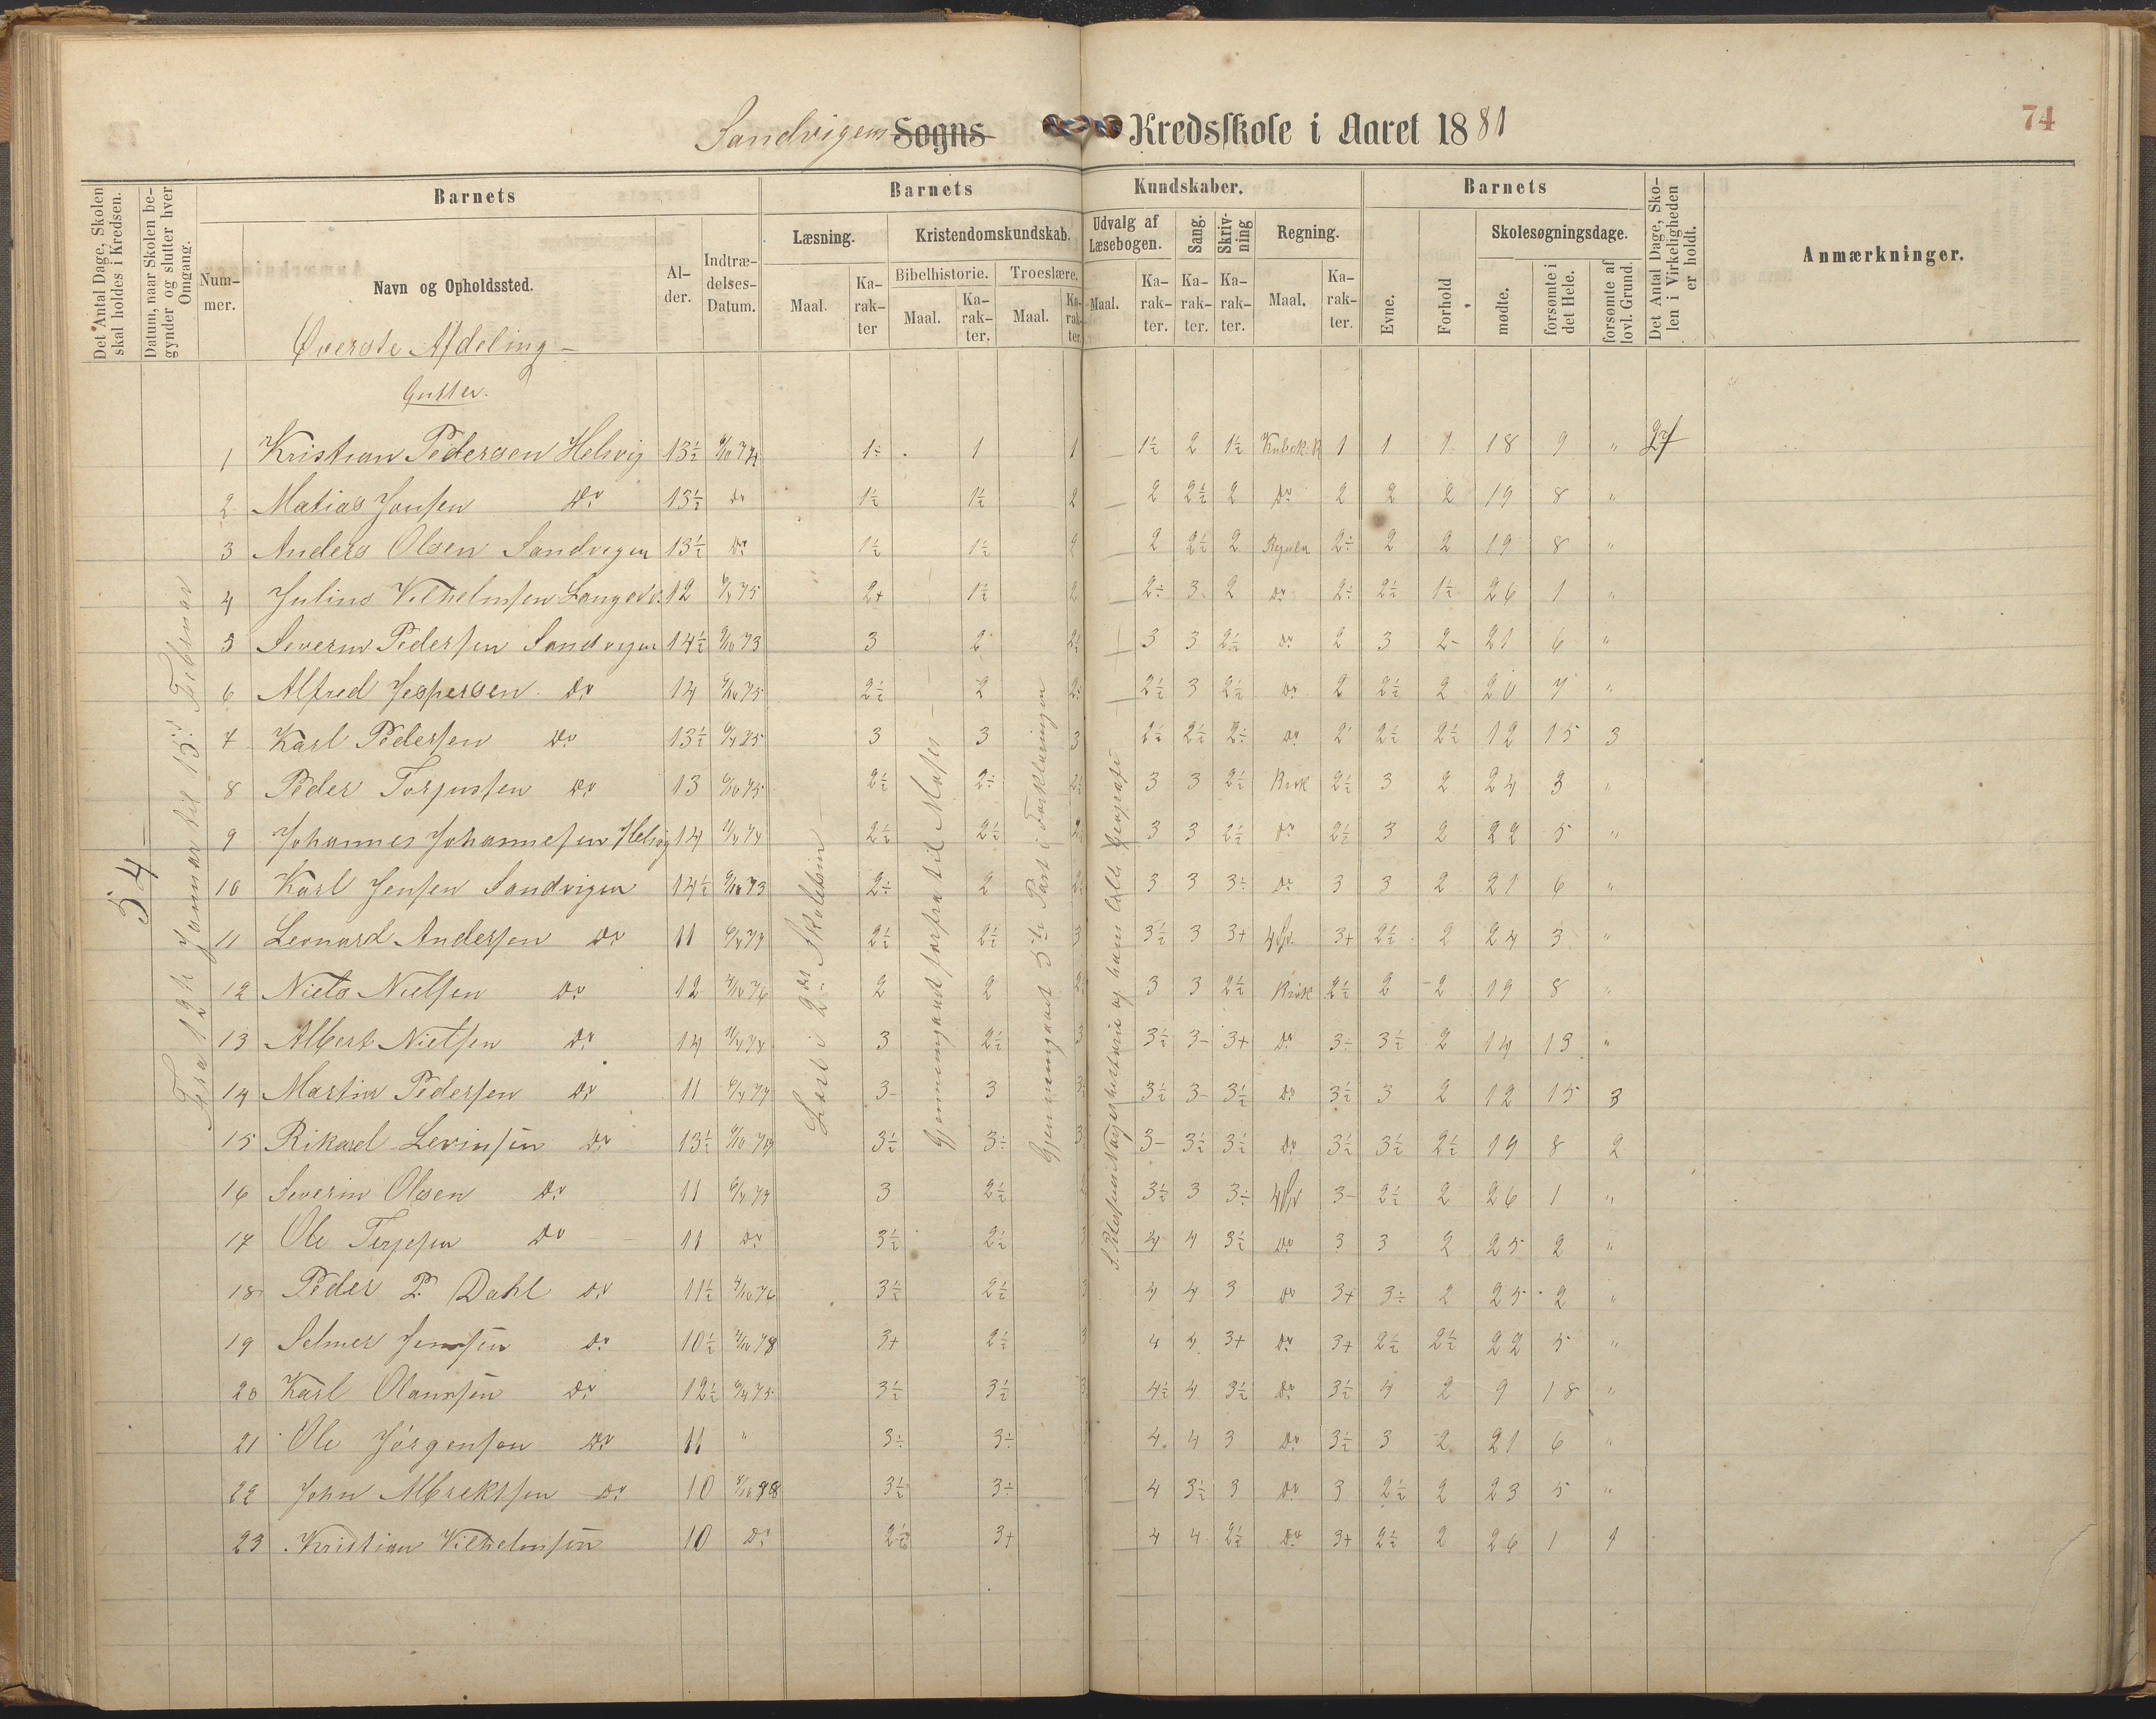 Sandvigens Sogns Kredsskole i Aaret 1881
74
Det Antal Dage, Skolen skal holdes i Kredsen.
Datum, naar Skolen begynder og slutter hver Omgang.
Barnets
Nummer.
Navn og Opholdssted.
Alder.
Indtrædelses-Datum.
Barnets Kundskaber.
Læsning.
Maal.
Karakter
Kristendomskundskab.
Bibelhistorie.
Maal.
Karakter.
Troeslære.
Maal.
Karakter
Udvalg af Læsebogen.
Maal.
Karakter.
Sang.
Karakter.
Skrivning
Karakter.
Regning.
Maal.
Karakter.
Barnets
Evne.
Forhold
Skolesøgningsdage.
mødte.
forsømte i det Hele.
forsømte af lovl. Grund.
Det Antal Dage, Skolen i Virkeligheden er holdt.
Anmærkninger.
Øverste Afdeling
Gutter.
54
Fra 12te Januar til 15de Februar
Læst i 2den Skoletrin
Gjennemgaaet forfra til Moses
Gjennemgaaet 5te Part i Forklaringen
1 Kristian Pedersen Helvig 13½ 1÷ 1 1 1½ 2 1½ 1 1 1 18 9 " 27
2 Matias Jensen Do 13½ do 1½ 1½ 2 2 2½ 2 do 2 2 2 19 8 "
3 Anders Olsen Sandvigen 13½ do 1½ 1½ 2 2 2½ 2 2÷ 2 2 19 8 "
4 Julius Vilhelmsen 12 2+ 1½ 2 2÷ 3 2 do 2÷ 2½ 1½ 26 1 "
5 Severin Pedersen Sandvigen 14½ 9/10 73 3 2 2½ 3 3 2½ do 2 3 2- 21 6 "
6 Alfred Jespersen do 14 2½ 2 2÷ 2½ 3 2½ do 2 2½ 2 20 7 "
7 Karl Pedersen do 13½ 3 3 3 2½ 2½ 2÷ do 2 2½ 2½ 12 15 3
8 Peder Torjussen do 13 2½ 2÷ 2½ 3 3 2½ Brøk 2½ 3 2 24 3 "
9 Johannes Johannesen Helvig 14 2½ 2½ 3 3 2½ do 2½ 3 2 22 5 "
10 Karl Jensen Sandvigen 14½ 2÷ 2 3 3 3÷ do 3 3 2 21 6 "
11 Leonard Andersen do 11 2½ 2½ 3 3½ 3 3+ 3+ 2½ 2 24 3 "
12 Niels Nielsen do 12 2 2 3 3 2½ Brøk 2½ 2 2 19 8 "
13 Albert Nielsen do 14 3 2½ 3 3½ 3- 3+ do 3÷ 3½ 2 14 13 "
14 Martin Pedersen do 11 3- 3 3½ 3- 3½ do 3½ 3 2 12 15 3
15 Rikard Levinsen do 13½ 3½ 3÷ 3 3- 3½ 3½ do 3½ 3½ 2½ 19 8 2
16 Severin Olsen do 11 3 2½ 3½ 3 3÷ 3- 2½ 2 26 1 "
17 Ole Terjesen do 11 do 3½ 2½ 4 4 3½ do 3 3 2 25 2 "
18 Peder P. Dahl do 11½ 3½ 2½ 4 4 3 do 3+ 3÷ 2 25 2 "
19 Selmer Jensen do 10½ 3+ 2½ 4 4 3+ do 3+ 2½ 2½ 22 5 "
20 Karl Olaussen do 12½ 3½ 3½ 4½ 4 3½ do 3½ 4 2 9 18 "
21 Ole Jørgensen do 11 " 3÷ 3÷ 4 4 3 do 3½ 3 2 21 6 "
22 John Albrektsen do 10 3½ 3÷ 4 3½ 3 do 3 2½ 2 23 5 "
23 Kristian Vilhelmsen 10 do 2½ 3+ 4 4 2½ do 3+ 2½ 2 26 1 1